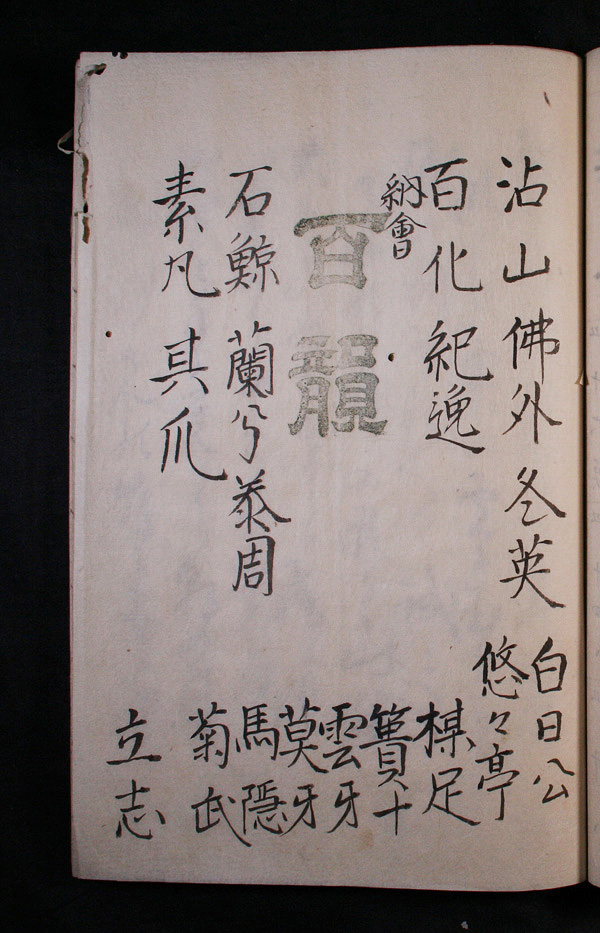 沾山 佛外 冬英
百化 紀逸
納會
百韻
石鯨 蘭兮 菾周
素凡 其爪
白日公
悠々亭
棋足
簣十
雲牙
莫牙
馬隱
菊武
立志